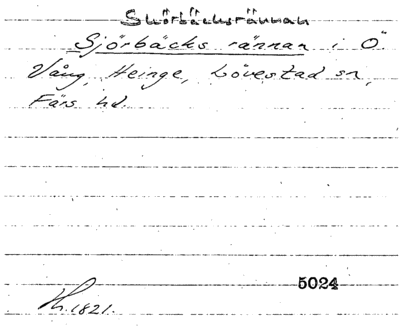 Sjörbäcksrännan
Sjörbäcks rännan i Ö
Vång, Heinge, Lövestad sn,
Färs hd.
5024
1821.